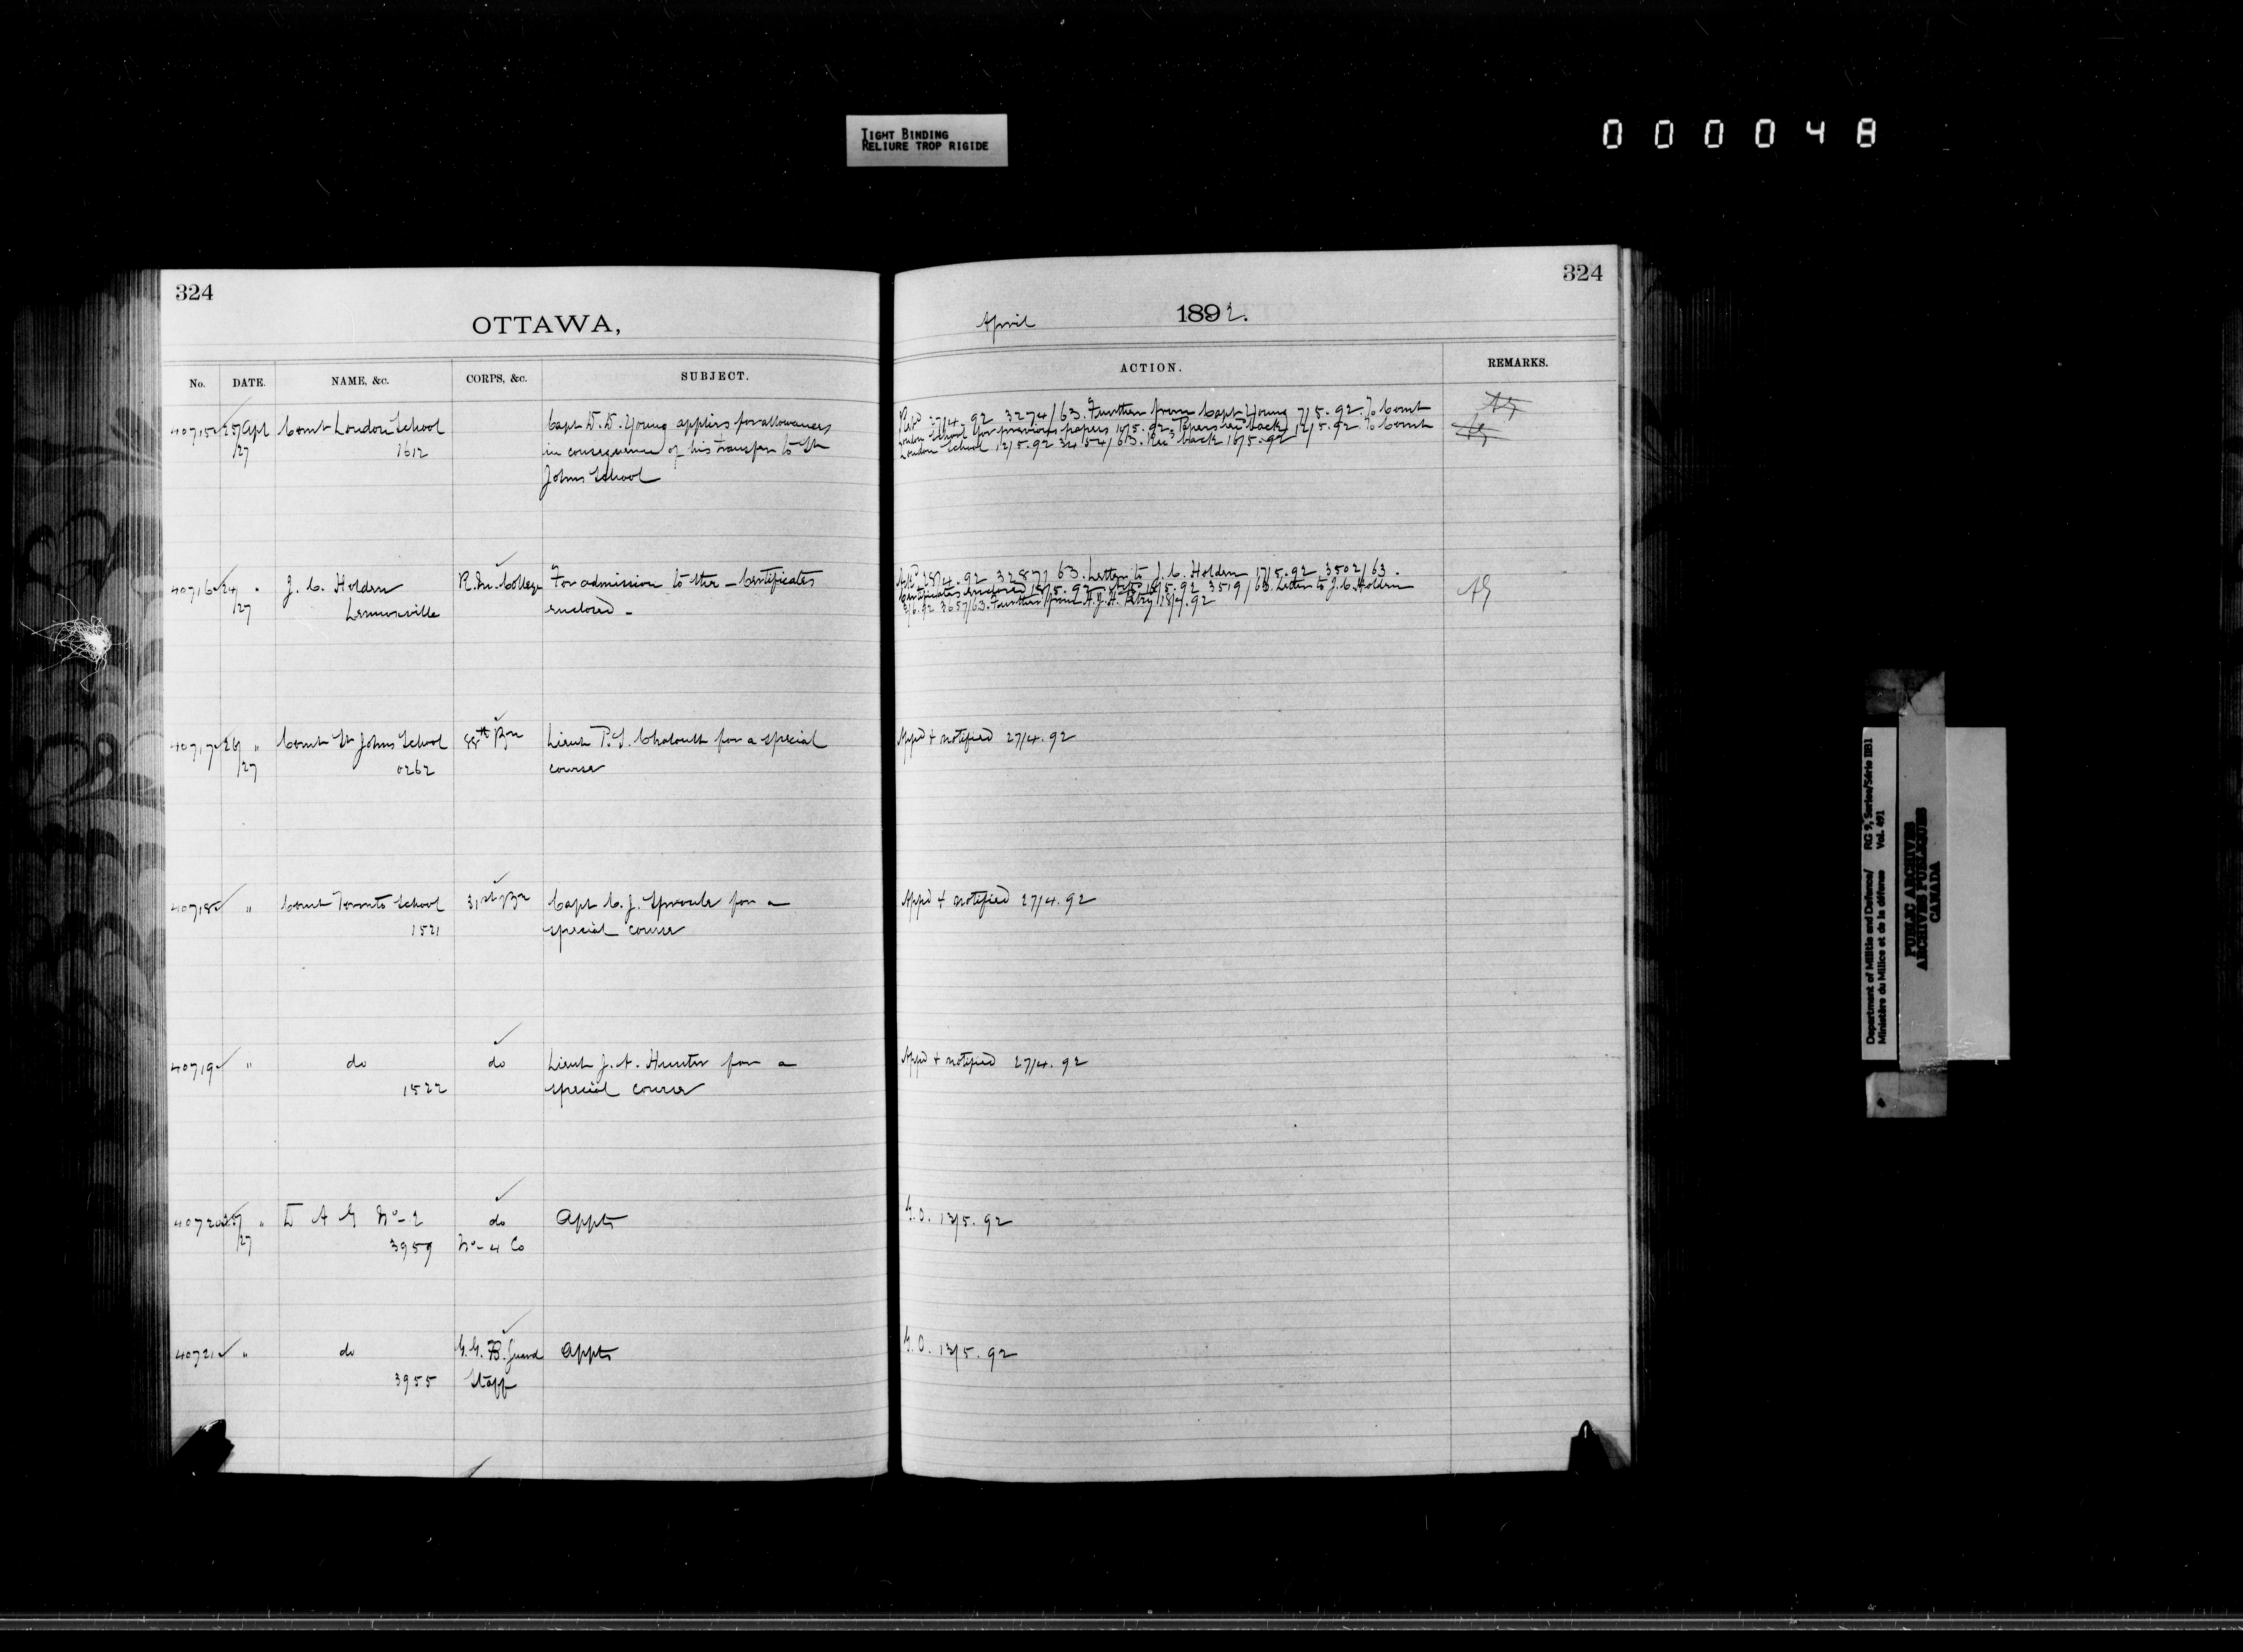 TIGHT BINDING
RELIURE TROP RIGIDE
000048
324
OTTAWA,
No. DATE. NAME, &c. CORPS, &c. SUBJECT.
40715 25/Apl Comt London School Capt D. D. Young applies for allowances
/27 1612 in consequence of his transfer to St
Johns School
40716 24/ " J. C. Holden R. M. College For admission to the - Certificates
/27 Lennoxville enclosed -
40717 26/ " Comt St Johns School 88th Bn Lieut P. S. Chalout for a special
/27 0262 course
40718 " Comt Toronto School 31st Bn Capt C. J. Sproule for a
1521 special course
40719 " do do Lieut J. A. Hunter for a
1522 special course
40720 25/ " D A G No-2 do Appts
/27 3959 No-4 Co
40721 " do G. G. B. Guard Appts
3955 Staff
324
April 1892.
ACTION. REMARKS.
27/4.92 3274/63. Further from Capt Young 7/5.92. To Comt
London School for previous papers 10/5.92. Papers recd back 12/5.92. To Comt
London School 12/5.92 3454/63. Rec back 16/5.92
28/4.92 3287/63. Letter to J. C. Holden 17/5.92 3502/63.
Certificates enclosed 18/5.92 3519/63. Letter to J. C. Holden
3/6.92 3657/63. Further from A. J. A. Petry 18/7.92
AG
Appd & notified 27/4.92
Appd & notified 27/4.92
Appd & notified 27/4.92
G. O. 13/5.92
G. O. 13/5.92
Department of Militia and Defence/ RG 9, Series/Série IIB1
Ministère du Milice et de la défense Vol. 491
PUBLIC ARCHIVES
ARCHIVES PUBLIQUES
CANADA